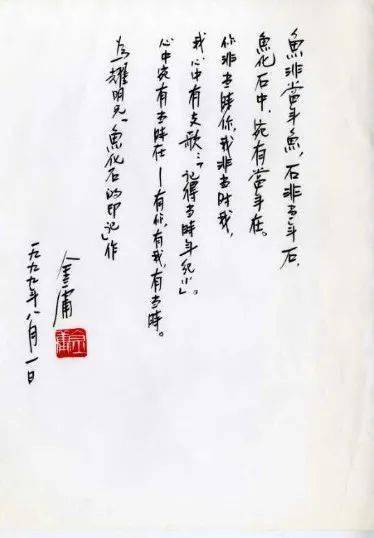 魚非當年魚，石非當年石，
魚化石中，宛有當年在。
你非當時你，我非當時我，
我心中有支歌：「記得當時年紀小」。
心中宛有當時在—有你，有我，有當時。
為耀明兄「魚化石的印記」作
金庸
一九九九年八月一日
金庸